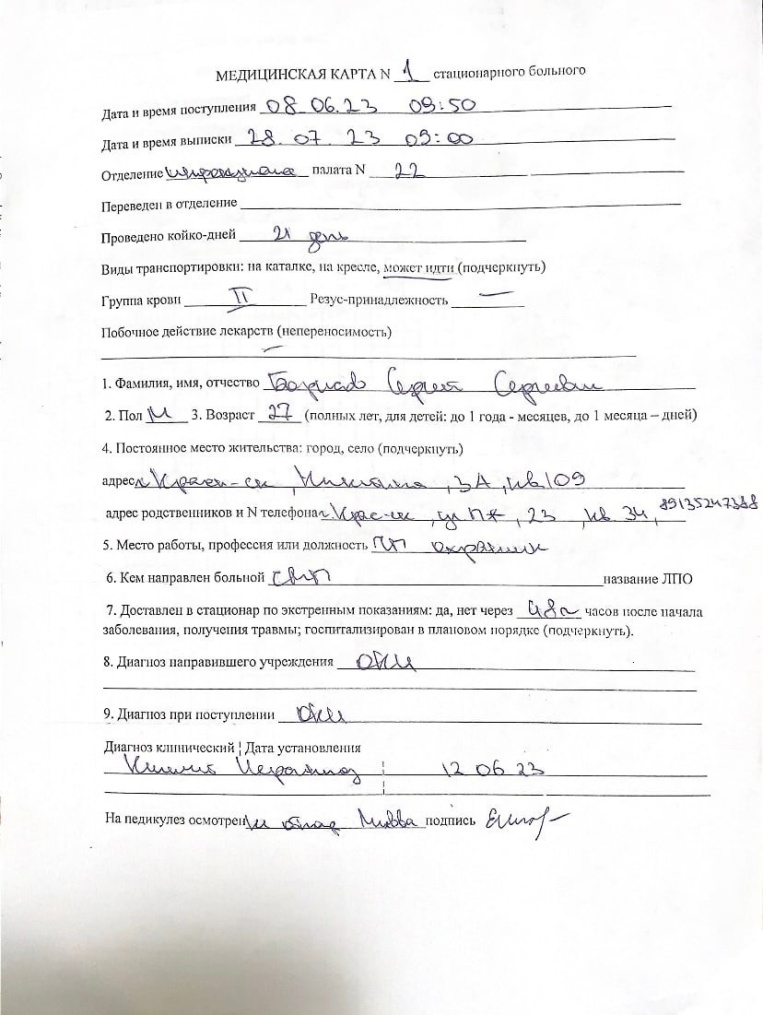 МЕДИЦИНСКАЯ КАРТА N 1 стационарного больного
Дата и время поступления 08.06.23 09:50
Дата и время выписки 28.07.23 09:00
Отделение палата N 22
Переведен в отделение
Проведено койко-дней 21 день
Виды транспортировки: на каталке, на кресле, может идти (подчеркнуть)
Группа крови II Резус-принадлежность —
Побочное действие лекарств (непереносимость)
1. Фамилия, имя, отчество Сергей Сергеевич
2. Пол М 3. Возраст 27 (полных лет, для детей: до 1 года - месяцев, до 1 месяца – дней)
4. Постоянное место жительства: город, село (подчеркнуть)
адрес , 3А, кв 109
адрес родственников и N телефона , 23, кв 34, 89135247388
5. Место работы, профессия или должность охранник
6. Кем направлен больной название ЛПО
7. Доставлен в стационар по экстренным показаниям: да, нет через часов после начала
заболевания, получения травмы; госпитализирован в плановом порядке (подчеркнуть).
8. Диагноз направившего учреждения ОКИ
9. Диагноз при поступлении ОКИ
Диагноз клинический ¦ Дата установления
12 06 23
На педикулез осмотрен подпись